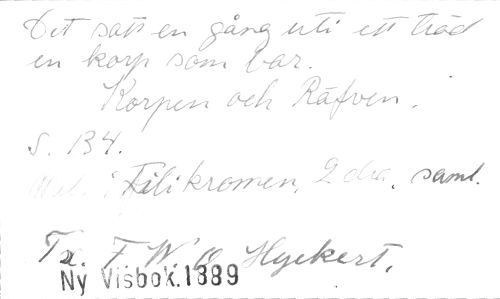 Det satt en gång uti ett träd
en korp som bar.
Korpen och Räfven.
S. 134.
Mel. i Filikromen, 2 dra. saml.
Tx. F. W.
Ny Visbok.1889